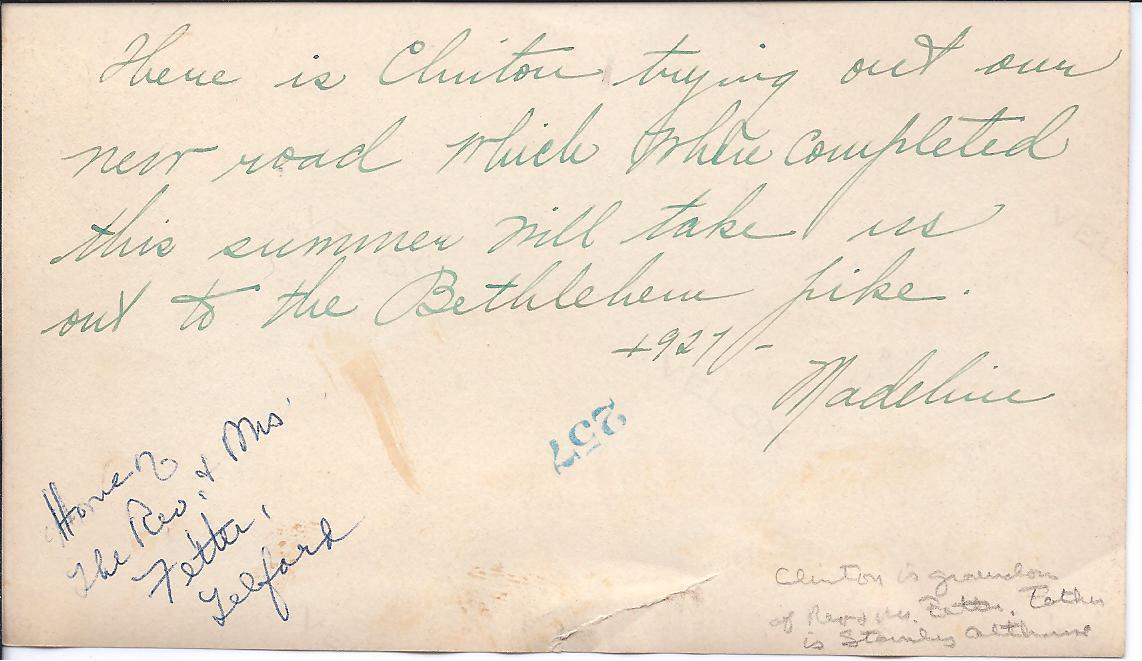 Here is Clinton trying out our
new road which when completed
this summer will take us
out to the Bethlehem pike.
1927 -
Madeline
257
Home of
The Rev. & Mrs
Fetter,
Telford
Clinton is grandson
of Rev & Mrs. Fetter. Father
is Stanley Althouse